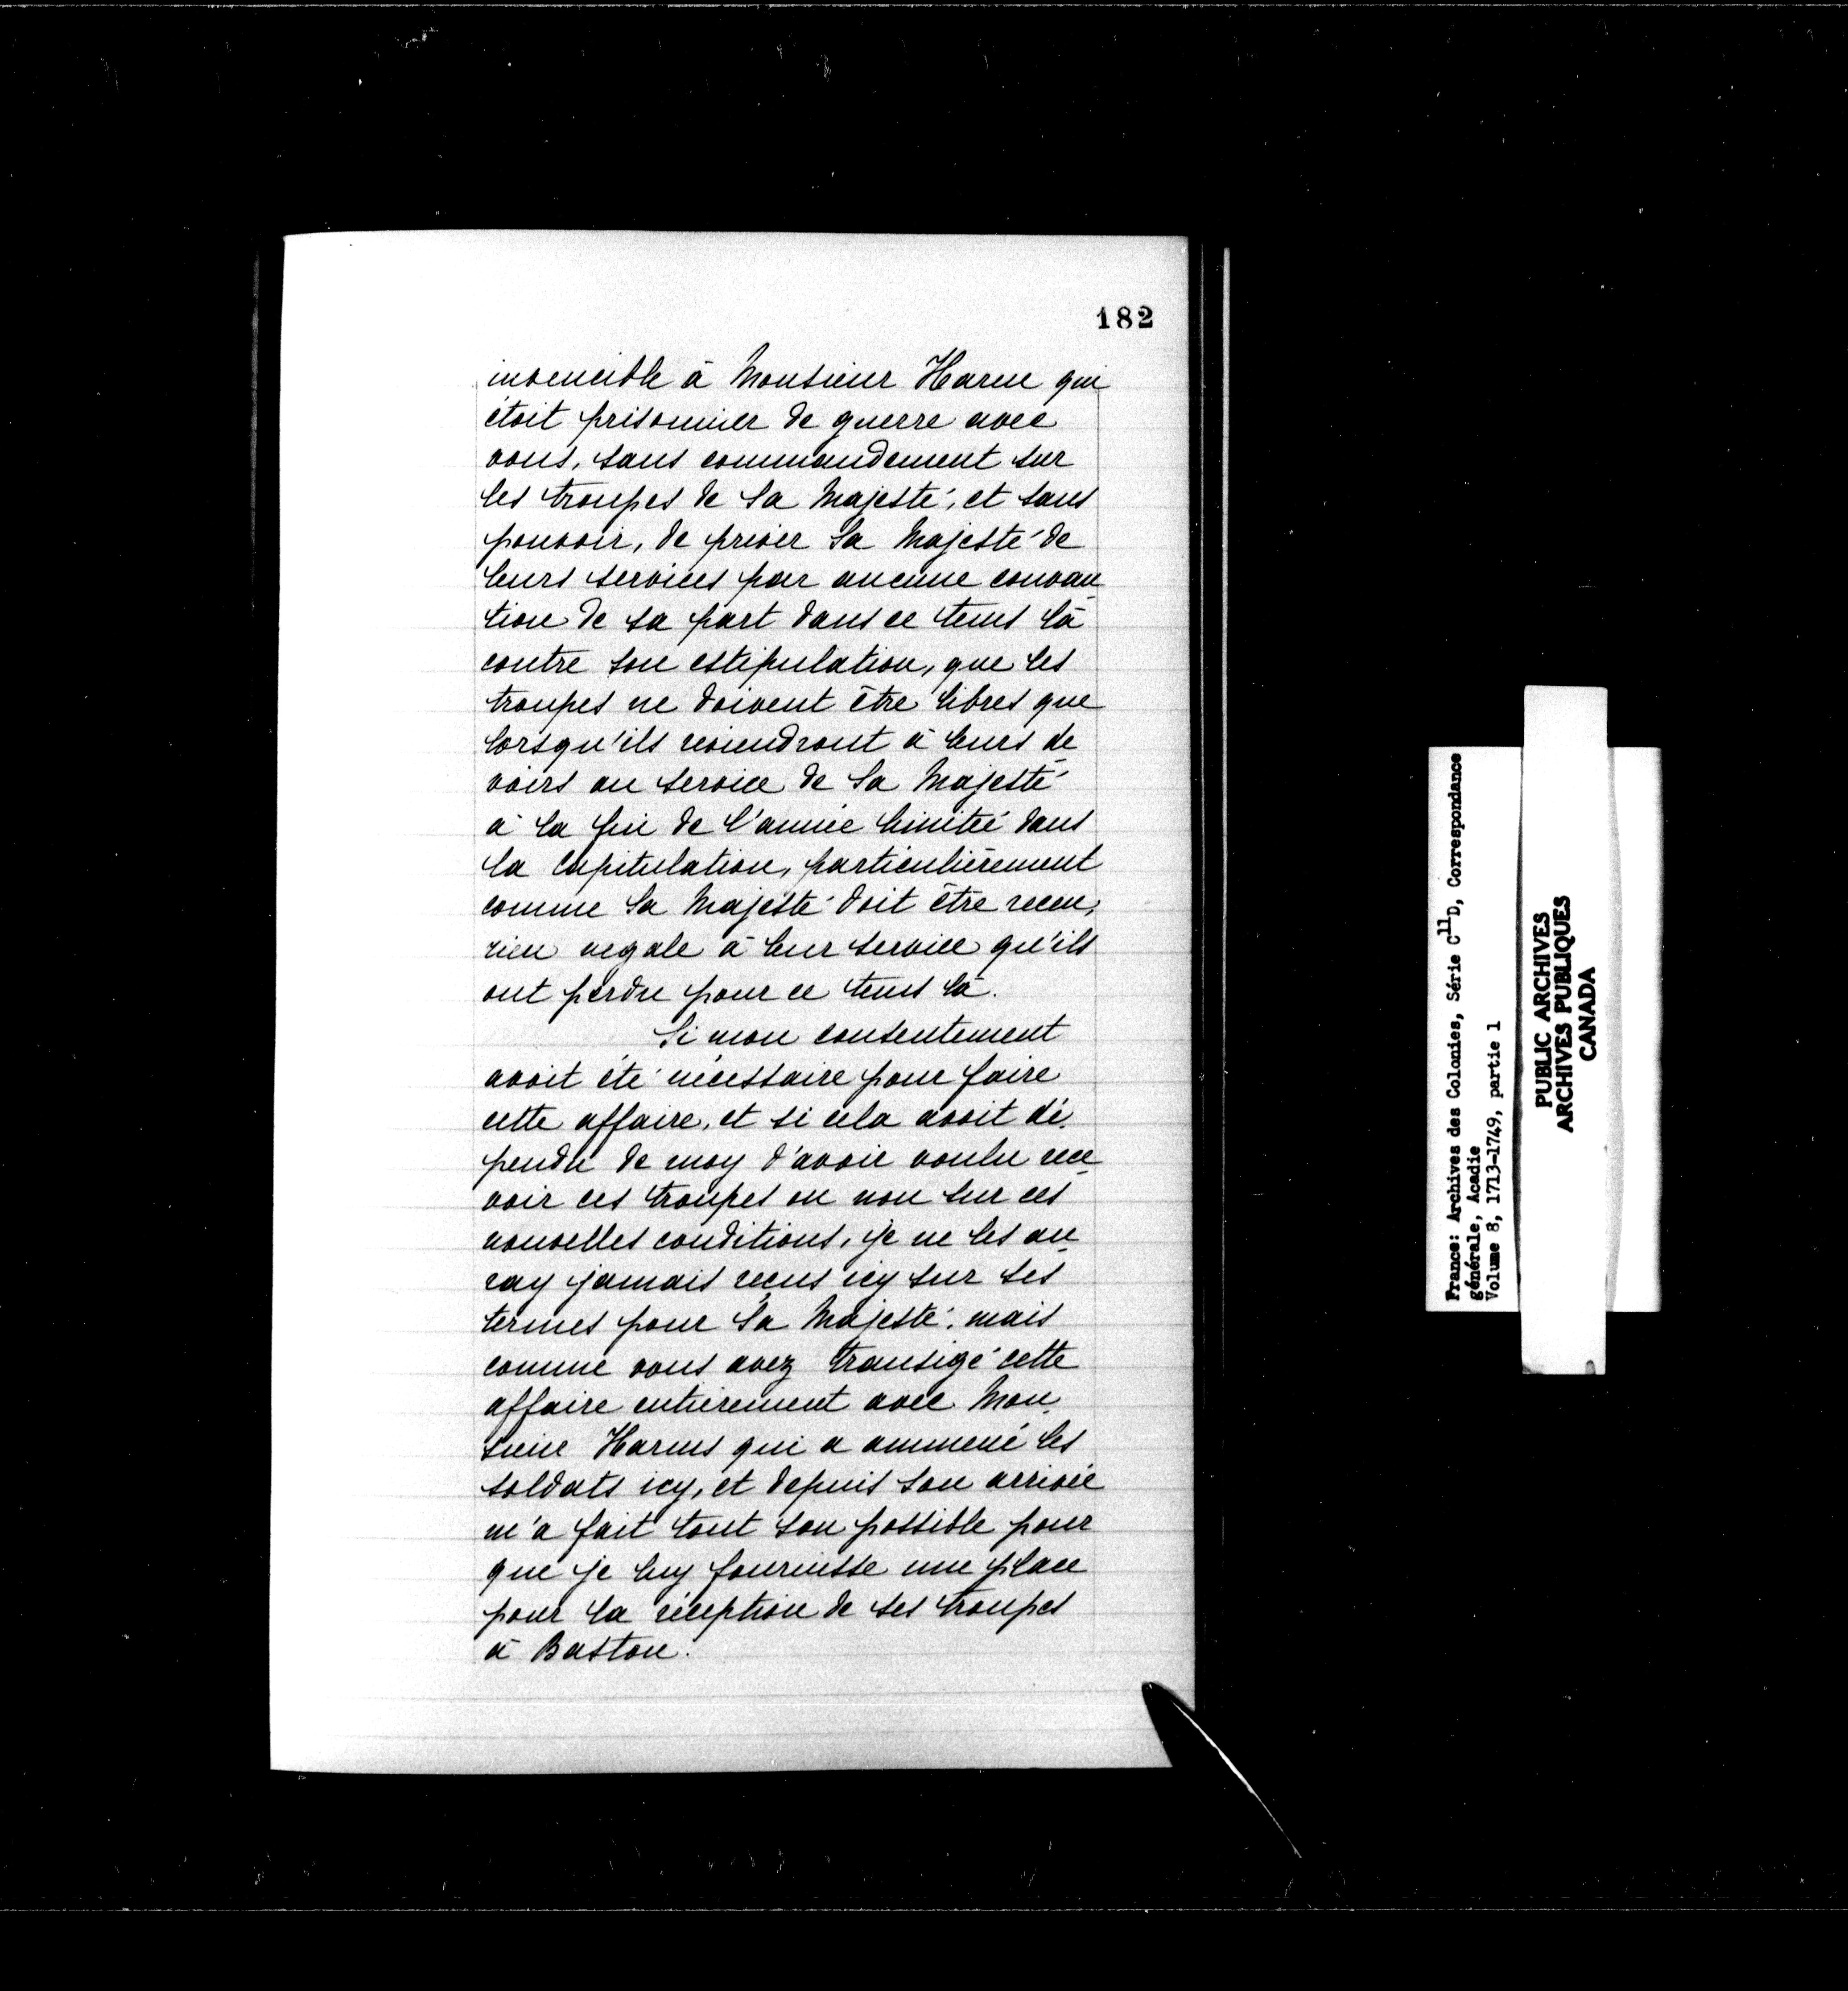 182
invencible à Monsieur Harne qui
étoit prisonnier de guerre avec
vous, sans commandement sur
les troupes de Sa Majesté, et sans
pouvoir, de priver Sa Majesté de
leurs services par aucune convan
tion de sa part dans ce tems là
contre son estipulation, que les
troupes ne doivent être libres que
lorsqu'ils reviendront à leurs de
voirs au service de Sa Majesté
à la fin de l'année limitée dans
la Capitulation, particulièrement
comme Sa Majesté doit être recu,
rien negale à leur service qu'ils
ont perdu pour ce tems là.
Si mon consentement
avoit été nécessaire pour faire
cette affaire, et si cela avoit dé
pendu de moy d'avoir voulu rece
voir ces troupes ou non sur ces
nouvelles conditions, je ne les au
ray jamais reçus icy sur ses
termes pour Sa Majesté, mais
comme vous avez transigé cette
affaire entièrement avec Mon
sieur Harnes qui a ammené les
soldats icy, et depuis son arrivée
m'a fait tout son possible pour
que je luy fournisse une place
pour la réception de ses troupes
à Baston.
France: Archives des Colonies, Série C11D, Correspondance
générale, Acadie
Volume 8, 1713-1749, partie 1
PUBLIC ARCHIVES
ARCHIVES PUBLIQUES
CANADA